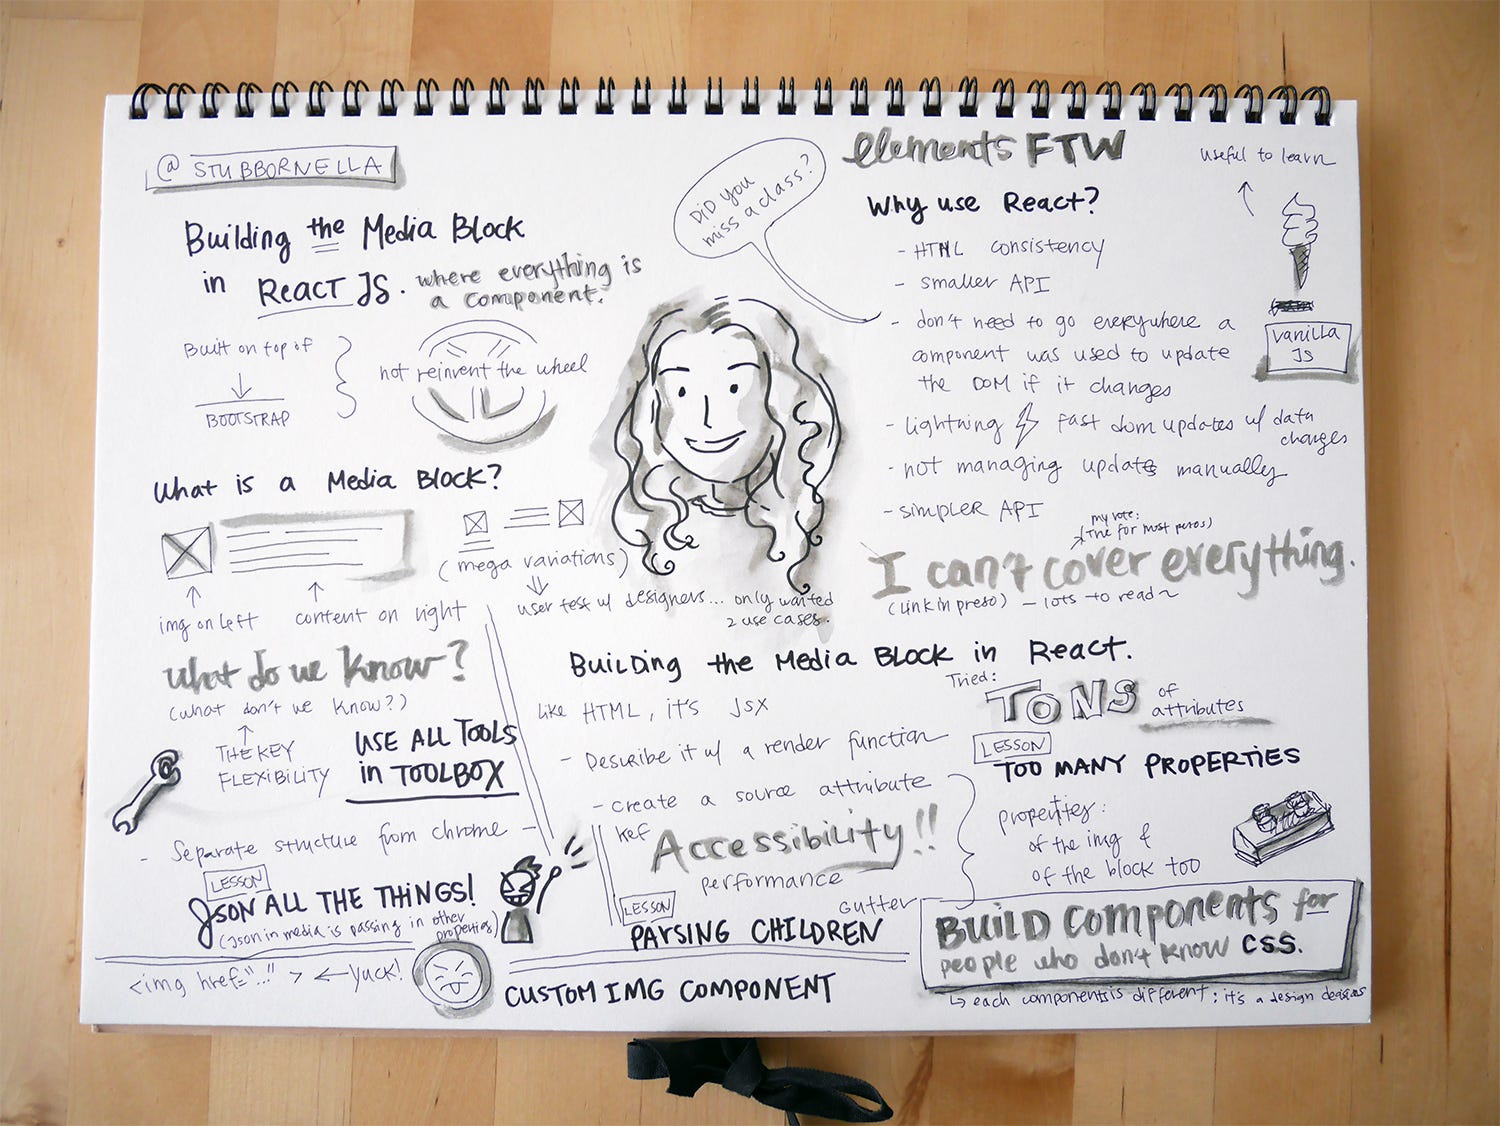 @ STUBBORNELLA
Building the Media Block
in React JS. where everything is
a component.
Built on top of
BOOTSTRAP
not reinvent the wheel
What is a Media Block?
img on left
content on right
(mega variations)
user test w/ designers... only wanted
2 use cases.
What do we know?
(what don't we know?)
THE KEY
FLEXIBILITY
USE ALL TOOLS
in TOOLBOX
- Separate structure from chrome -
LESSON
JSON ALL THE THINGS!
(Json in media is passing in other
properties)
<img href="..." > ← yuck!
DID you
miss a class?
elements FTW
Why use React?
- HTML consistency
- smaller API
- don't need to go everywhere a
component was used to update
the DOM if it changes
- lightning fast dom updates w/ data
changes
- not managing updates manually
- simpler API
useful to learn
vanilla
JS
my vote:
I can't cover everything.
(link in preso) - lots to read~
Building the Media Block in React.
like HTML, it's JSX
- Describe it w/ a render function
- create a source attribute
Accessibility!!
performance
Gutter
LESSON
PARSING CHILDREN
CUSTOM IMG COMPONENT
Tried:
TONS of
attributes
LESSON
TOO MANY PROPERTIES
properties:
of the img &
of the block too
BUILD components for
people who don't know CSS.
↳ each components is different: it's a design